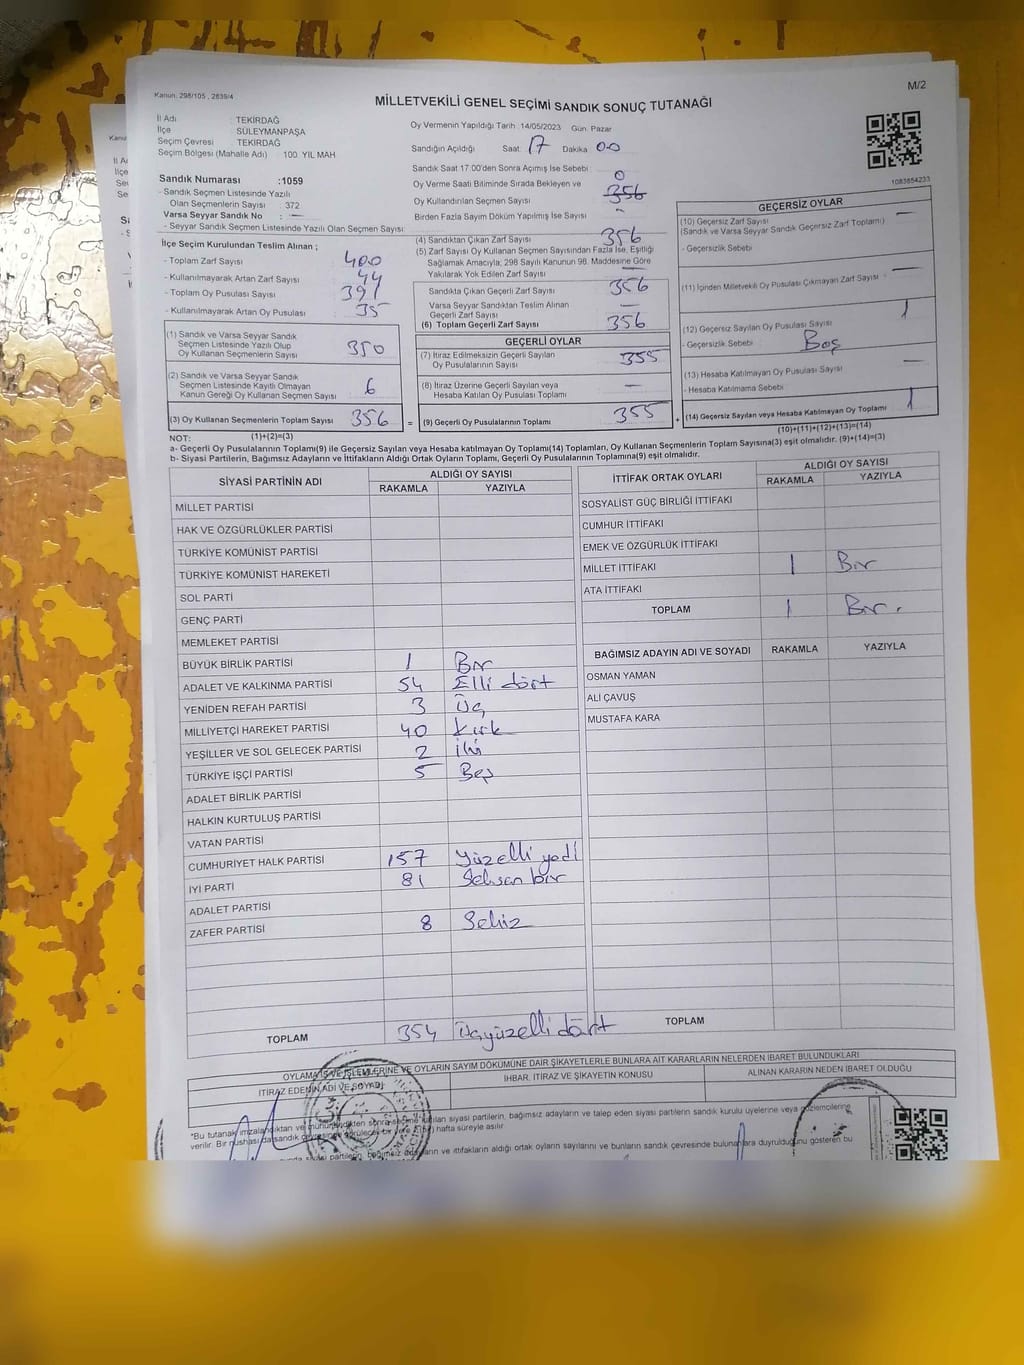 Kanun. 298/105 , 2839/4
M/2
MİLLETVEKİLİ GENEL SEÇİMİ SANDIK SONUÇ TUTANAĞI
İl Adı : TEKİRDAĞ
İlçe : SÜLEYMANPAŞA
Seçim Çevresi : TEKİRDAĞ
Seçim Bölgesi (Mahalle Adı) 100. YIL MAH
Sandık Numarası :1059
- Sandık Seçmen Listesinde Yazılı
Olan Seçmenlerin Sayısı : 372
Varsa Seyyar Sandık No : —
- Seyyar Sandık Seçmen Listesinde Yazılı Olan Seçmen Sayısı:
İlçe Seçim Kurulundan Teslim Alınan ;
- Toplam Zarf Sayısı 400
- Kullanılmayarak Artan Zarf Sayısı 44
- Toplam Oy Pusulası Sayısı 391
- Kullanılmayarak Artan Oy Pusulası 35
(1) Sandık ve Varsa Seyyar Sandık
Seçmen Listesinde Yazılı Olup
Oy Kullanan Seçmenlerin Sayısı 350
(2) Sandık ve Varsa Seyyar Sandık
Seçmen Listesinde Kayıtlı Olmayan
Kanun Gereği Oy Kullanan Seçmen Sayısı 6
(3) Oy Kullanan Seçmenlerin Toplam Sayısı 356
(1)+(2)=(3)
Oy Vermenin Yapıldığı Tarih : 14/05/2023 Gün. Pazar
Sandığın Açıldığı Saat 17 Dakika 00
Sandık Saat 17:00'den Sonra Açılmış İse Sebebi :
Oy Verme Saati Bitiminde Sırada Bekleyen ve 0
Oy Kullandırılan Seçmen Sayısı 356
Birden Fazla Sayım Döküm Yapılmış İse Sayısı -
(4) Sandıktan Çıkan Zarf Sayısı 356
(5) Zarf Sayısı Oy Kullanan Seçmen Sayısından Fazla İse, Eşitliği
Sağlamak Amacıyla; 298 Sayılı Kanunun 98. Maddesine Göre
Yakılarak Yok Edilen Zarf Sayısı —
Sandıkta Çıkan Geçerli Zarf Sayısı 356
Varsa Seyyar Sandıktan Teslim Alınan
Geçerli Zarf Sayısı —
(6) Toplam Geçerli Zarf Sayısı 356
GEÇERLİ OYLAR
(7) İtiraz Edilmeksizin Geçerli Sayılan
Oy Pusulalarının Sayısı 355
(8) İtiraz Üzerine Geçerli Sayılan veya
Hesaba Katılan Oy Pusulası Toplamı —
= (9) Geçerli Oy Pusulalarının Toplamı 355 +
1083654233
GEÇERSİZ OYLAR
(10) Geçersiz Zarf Sayısı —
(Sandık ve Varsa Seyyar Sandık Geçersiz Zarf Toplamı)
- Geçersizlik Sebebi
(11) İçinden Milletvekili Oy Pusulası Çıkmayan Zarf Sayısı : —
(12) Geçersiz Sayılan Oy Pusulası Sayısı 1
- Geçersizlik Sebebi Boş
(13) Hesaba Katılmayan Oy Pusulası Sayısı —
- Hesaba Katılmama Sebebi
(14) Geçersiz Sayılan veya Hesaba Katılmayan Oy Toplamı 1
(10)+(11)+(12)+(13)=(14)
NOT:
a- Geçerli Oy Pusulalarının Toplamı(9) ile Geçersiz Sayılan veya Hesaba katılmayan Oy Toplamı(14) Toplamları, Oy Kullanan Seçmenlerin Toplam Sayısına(3) eşit olmalıdır. (9)+(14)=(3)
b- Siyasi Partilerin, Bağımsız Adayların ve İttifakların Aldığı Ortak Oyların Toplamı, Geçerli Oy Pusulalarının Toplamına(9) eşit olmalıdır.
SİYASİ PARTİNİN ADI ALDIĞI OY SAYISI
RAKAMLA YAZIYLA
MİLLET PARTİSİ
HAK VE ÖZGÜRLÜKLER PARTİSİ
TÜRKİYE KOMÜNİST PARTİSİ
TÜRKİYE KOMÜNİST HAREKETİ
SOL PARTİ
GENÇ PARTİ
MEMLEKET PARTİSİ
BÜYÜK BİRLİK PARTİSİ 1 Bir
ADALET VE KALKINMA PARTİSİ 54 Elli dört
YENİDEN REFAH PARTİSİ 3 Üç
MİLLİYETÇİ HAREKET PARTİSİ 40 Kırk
YEŞİLLER VE SOL GELECEK PARTİSİ 2 İki
TÜRKİYE İŞÇİ PARTİSİ 5 Beş
ADALET BİRLİK PARTİSİ
HALKIN KURTULUŞ PARTİSİ
VATAN PARTİSİ
CUMHURİYET HALK PARTİSİ 157 Yüzelli yedi
İYİ PARTİ 81 Seksen bir
ADALET PARTİSİ
ZAFER PARTİSİ 8 Sekiz
TOPLAM 354 Üçyüzelli dört
İTTİFAK ORTAK OYLARI ALDIĞI OY SAYISI
RAKAMLA YAZIYLA
SOSYALİST GÜÇ BİRLİĞİ İTTİFAKI
CUMHUR İTTİFAKI
EMEK VE ÖZGÜRLÜK İTTİFAKI
MİLLET İTTİFAKI 1 Bir
ATA İTTİFAKI
TOPLAM 1 Bir.
BAĞIMSIZ ADAYIN ADI VE SOYADI RAKAMLA YAZIYLA
OSMAN YAMAN
ALİ ÇAVUŞ
MUSTAFA KARA
TOPLAM
OYLAMA İŞ VE İŞLEMLERİNE VE OYLARIN SAYIM DÖKÜMÜNE DAİR ŞİKAYETLERLE BUNLARA AİT KARARLARIN NELERDEN İBARET BULUNDUKLARI
İTİRAZ EDENİN ADI VE SOYADI İHBAR, İTİRAZ VE ŞİKAYETİN KONUSU ALINAN KARARIN NEDEN İBARET OLDUĞU
*Bu tutanak imzalandıktan ve mühürlendikten sonra seçime katılan siyasi partilerin, bağımsız adayların ve talep eden siyasi partilerin sandık kurulu üyelerine veya gözlemcilerine
verilir. Bir nüshası da sandık çevresinde hafta süreyle asılır.
siyasi partilerin, bağımsız adayların ve ittifakların aldığı ortak oyların sayılarını ve bunların sandık çevresinde bulunanlara duyrulduğunu gösteren bu